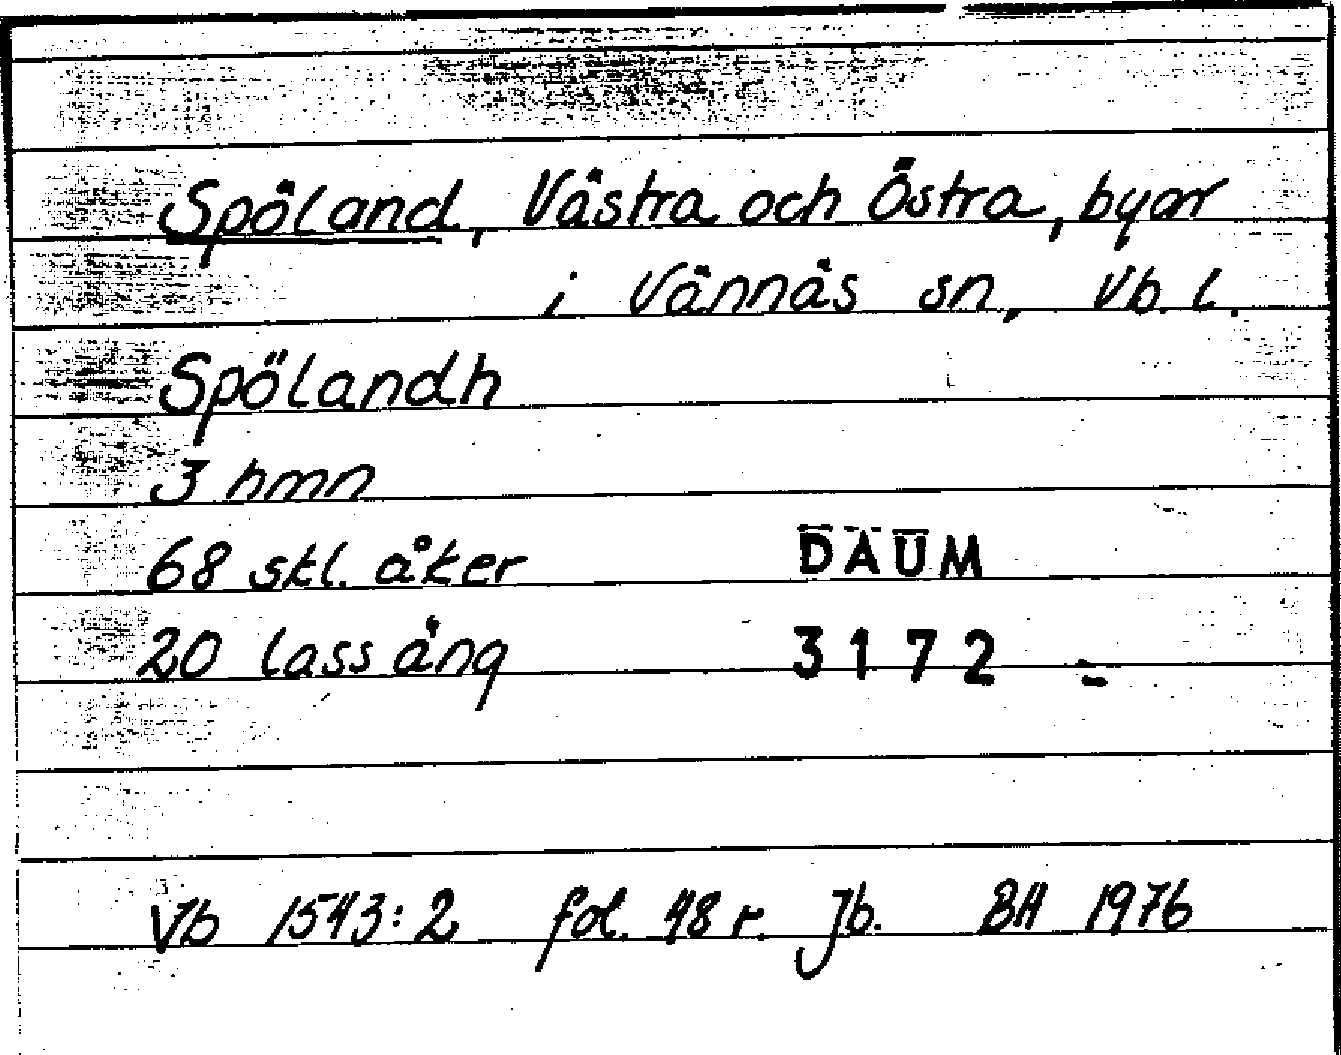 Spöland, Västra och Östra, byar
i Vännäs sn, Vb. l.
Spölandh
3 hmn
68 skl. åker
DAUM
20 lass äng
3172
Vb 1543:2 fol. 48 r. Jb. BH 1976